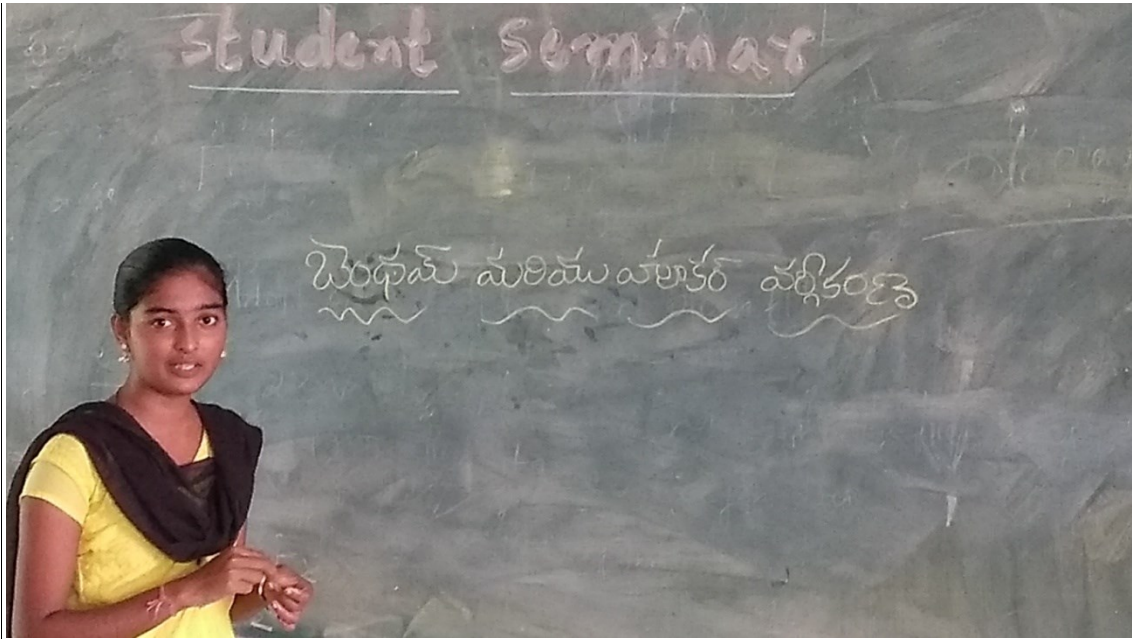 Student Seminar
బెంథామ్ మరియు హుకర్ వర్గీకరణ